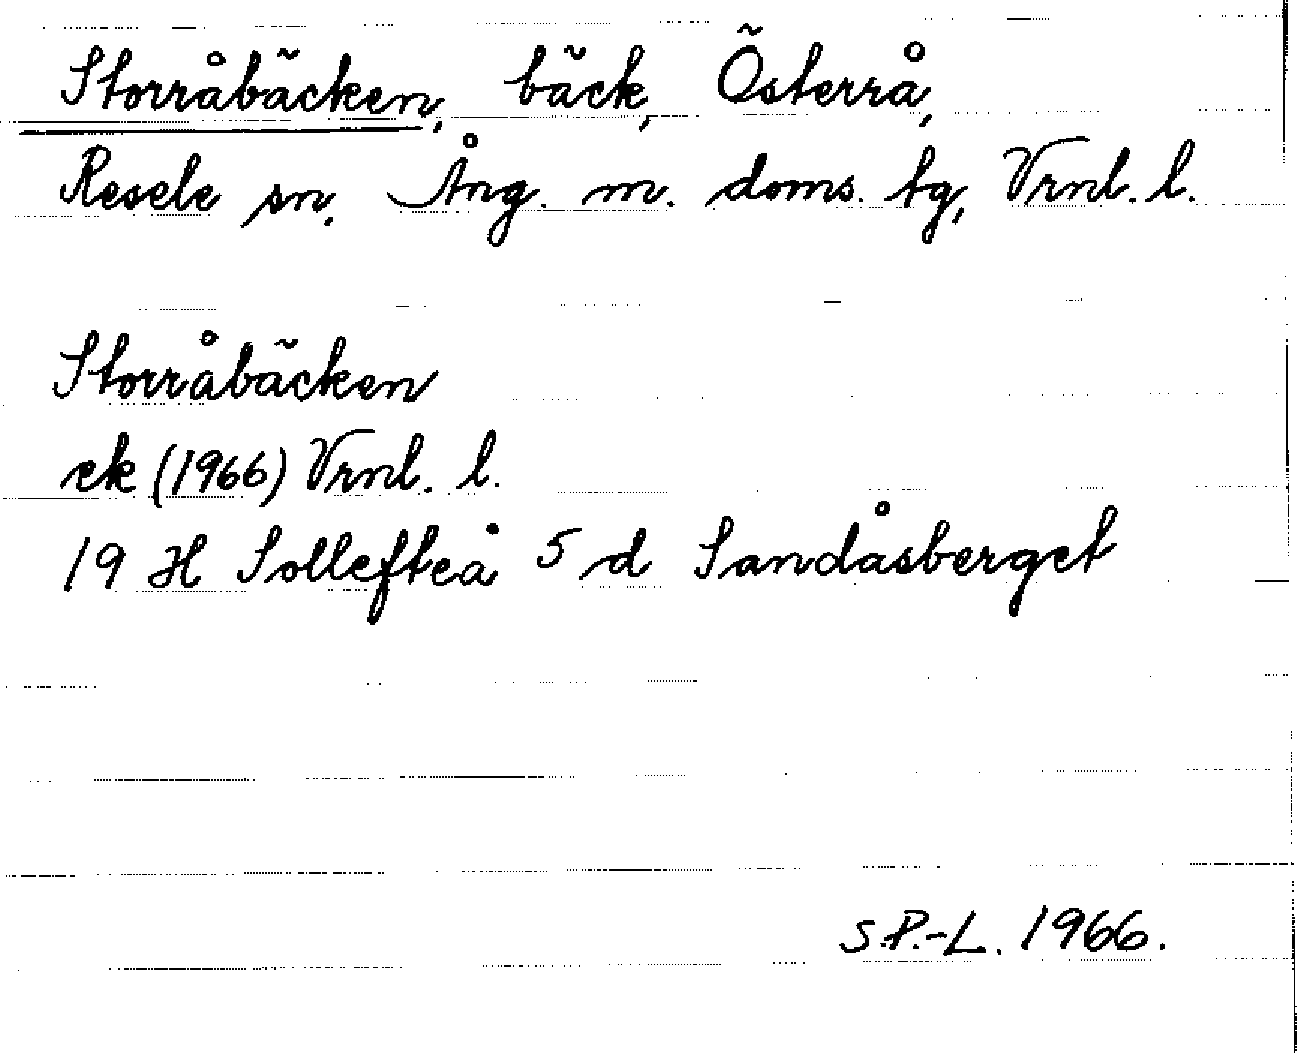 Storråbäcken, bäck, Österrå,
Resele sn. Ång. m. doms. tg, Vrnl. l.
Storråbäcken
ek (1966) Vrnl. l.
19 H Sollefteå 5 d Sandåsberget
S.P.-L. 1966.